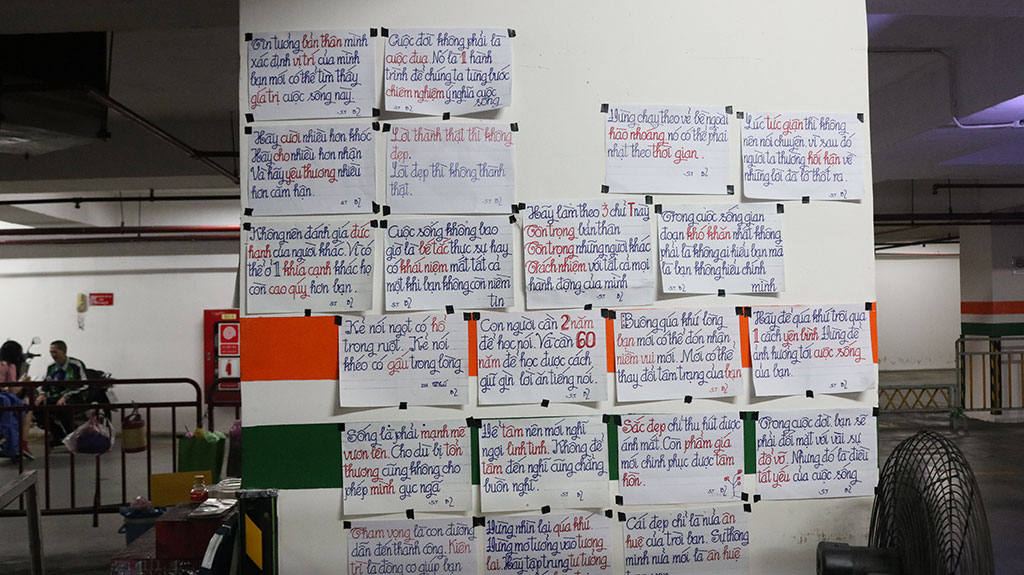 Tin tưởng bản thân mình
xác định vị trí của mình
bạn mới có thể tìm thấy
giá trị cuộc sống này.
Cuộc đời không phải là
cuộc đua. Nó là 1 hành
trình để chúng ta từng bước
chiêm nghiệm ý nghĩa cuộc
sống
Đừng chạy theo vẻ bề ngoài
hào nhoáng nó có thể phai
nhạt theo thời gian.
Lúc tức giận thì không
nên nói chuyện. vì sau đó
người ta thường hối hận về
những lời đã lỡ thốt ra.
Hãy cười nhiều hơn khóc
Hãy cho nhiều hơn nhận
Và hãy yêu thương nhiều
hơn căm hận.
Lời thành thật thì không
đẹp.
Lời đẹp thì không thành
thật.
Không nên đánh giá đức
hạnh của người khác. Vì có
thể ở 1 khía cạnh khác họ
còn cao qúy hơn bạn.
Cuộc sống không bao
giờ là bế tắc thực sự hay
có khái niệm mất tất cả
một khi bạn không còn niềm
tin
Hãy làm theo 3 chữ T này
Tôn trọng bản thân
Tôn trọng những người khác
Trách nhiệm với tất cả mọi
hành động của mình
Trong cuộc sống gian
đoạn khó khăn nhất không
phải là không ai hiểu bạn mà
là bạn không hiểu chính
mình
Kẻ nói ngọt có hồ
trong ruột. Kẻ nói
khéo có gấu trong lòng
Con người cần 2 năm
để học nói. Và cần 60
năm để học được cách
giữ gìn lời ăn tiếng nói.
Buông qúa khứ lòng
bạn mới có thể đón nhận
niềm vui mới. Mới có thể
thay đổi tâm trạng của bạn
Hãy để qúa khứ trôi qua
1 cách yên bình. Đừng để
ảnh hưởng tới cuộc sống
của bạn.
Sống là phải mạnh mẽ
vươn lên. Cho dù bị tổn
thương cũng không cho
phép mình gục ngã
Để tâm nên mới nghĩ
ngợi linh tinh. Không để
tâm đến nghĩ cũng chẳng
buồn nghĩ.
Sắc đẹp chỉ thu hút được
ánh mắt. Còn phẩm giá
mới chinh phục được tâm
hồn.
Trong cuộc đời bạn sẽ
phải đối mặt với vài sự
đổ vỡ. Nhưng đó là điều
tất yếu của cuộc sống
Tham vọng là con đường
dẫn đến thành công. Kiên
trì là động cơ giúp bạn
Đừng nhìn lại qúa khứ.
Đừng mơ tưởng vào tương
lai. Hãy tập trung tư tưởng
Cái đẹp chỉ là nửa ân
huệ của trời ban. Sự thông
minh nửa mới là ân huệ